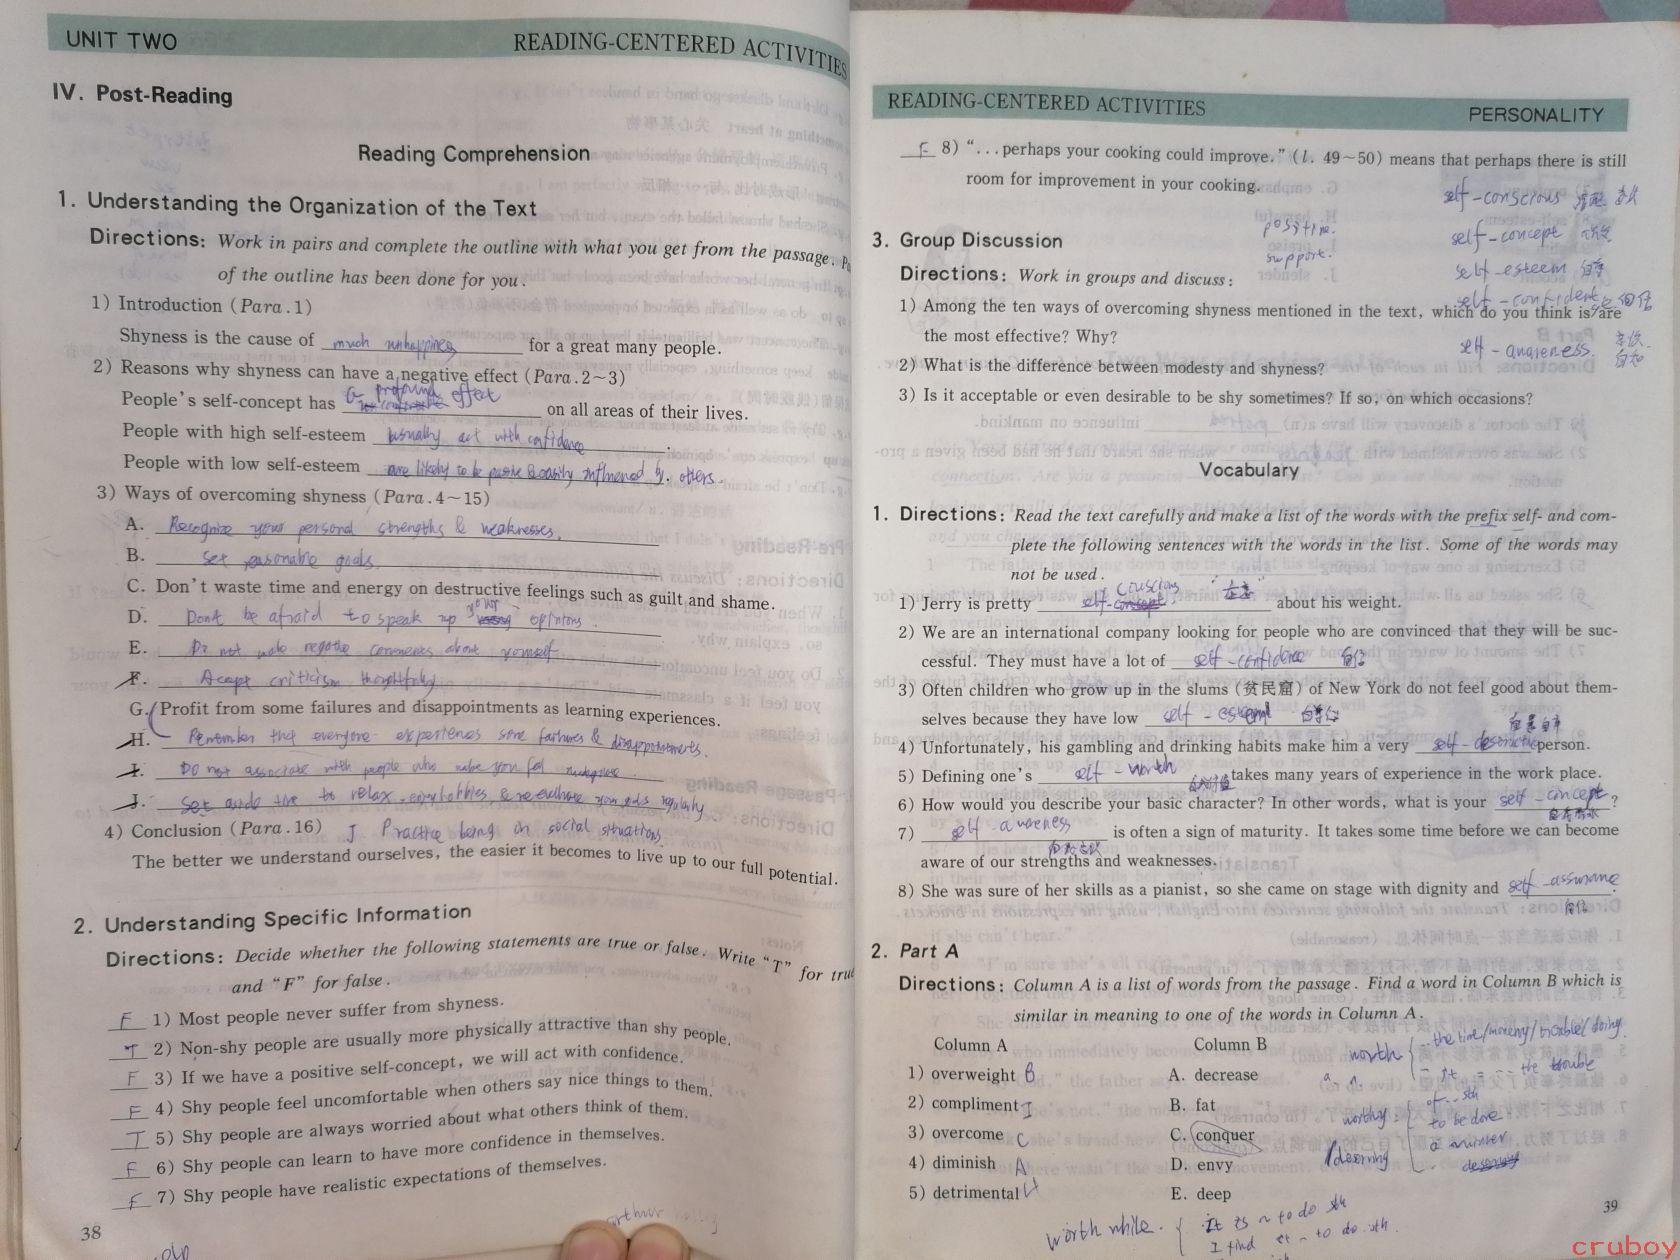 UNIT TWO READING-CENTERED ACTIVITIES
IV. Post-Reading
Reading Comprehension
1. Understanding the Organization of the Text
Directions: Work in pairs and complete the outline with what you get from the passage.
of the outline has been done for you.
1) Introduction (Para.1)
Shyness is the cause of much unhappiness for a great many people.
2) Reasons why shyness can have a negative effect (Para.2~3)
People's self-concept has a profound effect on all areas of their lives.
People with high self-esteem usually act with confidence.
People with low self-esteem are likely to be passive & easily influenced by others.
3) Ways of overcoming shyness (Para.4~15)
A. Recognize your personal strengths & weaknesses.
B. Set reasonable goals.
C. Don't waste time and energy on destructive feelings such as guilt and shame.
D. Don't be afraid to speak up your opinions.
E. Do not make negative comments about yourself
F. Accept criticism thoughtfully
G. Profit from some failures and disappointments as learning experiences.
H. Remember that everyone experiences some failures & disappointments.
I. Do not associate with people who make you feel
J. Set aside time to relax, enjoy hobbies, & re-evaluate your goals regularly
4) Conclusion (Para.16) J. Practice being in social situations
The better we understand ourselves, the easier it becomes to live up to our full potential.
2. Understanding Specific Information
Directions: Decide whether the following statements are true or false. Write "T" for true
and "F" for false.
F 1) Most people never suffer from shyness.
T 2) Non-shy people are usually more physically attractive than shy people.
F 3) If we have a positive self-concept, we will act with confidence.
F 4) Shy people feel uncomfortable when others say nice things to them.
T 5) Shy people are always worried about what others think of them.
F 6) Shy people can learn to have more confidence in themselves.
F 7) Shy people have realistic expectations of themselves.
38
READING-CENTERED ACTIVITIES PERSONALITY
F 8) "...perhaps your cooking could improve." (l. 49~50) means that perhaps there is still
room for improvement in your cooking.
self-conscious
positive. self-concept
support. self-esteem 自尊
self-confidence 自信
self-awareness. 自知
3. Group Discussion
Directions: Work in groups and discuss:
1) Among the ten ways of overcoming shyness mentioned in the text, which do you think is/are
the most effective? Why?
2) What is the difference between modesty and shyness?
3) Is it acceptable or even desirable to be shy sometimes? If so, on which occasions?
Vocabulary
1. Directions: Read the text carefully and make a list of the words with the prefix self- and com-
plete the following sentences with the words in the list. Some of the words may
not be used.
1) Jerry is pretty self-conscious about his weight.
2) We are an international company looking for people who are convinced that they will be suc-
cessful. They must have a lot of self-confidence 自信
3) Often children who grow up in the slums (贫民窟) of New York do not feel good about them-
selves because they have low self-esteem
4) Unfortunately, his gambling and drinking habits make him a very self-destructive person.
5) Defining one's self-worth takes many years of experience in the work place.
6) How would you describe your basic character? In other words, what is your self-concept?
7) self-awareness is often a sign of maturity. It takes some time before we can become
aware of our strengths and weaknesses.
8) She was sure of her skills as a pianist, so she came on stage with dignity and self-assurance.
自信
2. Part A
Directions: Column A is a list of words from the passage. Find a word in Column B which is
similar in meaning to one of the words in Column A.
Column A Column B
1) overweight B A. decrease
2) compliment I B. fat
3) overcome C C. conquer
4) diminish A D. envy
5) detrimental H E. deep
worth the time/money/trouble/doing.
the trouble
worthy of sth
to be done
a winner
deserving
worthwhile. It is ~ to do sth
I find it ~ to do sth.
39
cruboy